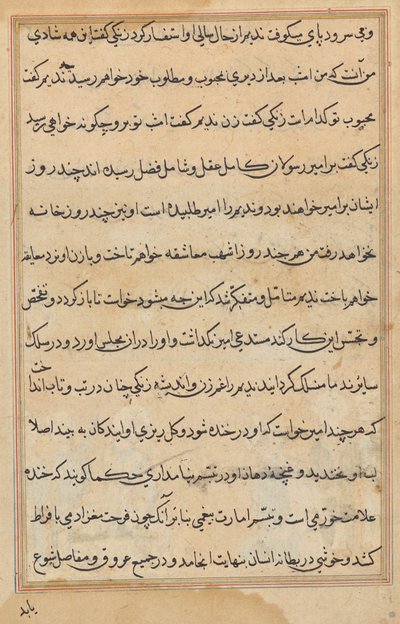 و می سرود و پای میکوفت ندیم از حال سالی او استفسار کرد زنکی کفت این همه شادی
من آنست که من امشب بعد از دیری بمحبوب و مطلوب خود خواهم رسید ندیم کفت
محبوب تو کدام است زنکی کفت زن ندیم کفت امشب تو برو چکونه خواهی رسید
زنکی کفت بر امیر رسولان کامل عقل و شامل فضل رسیده اند چند روز
ایشان بر امیر خواهند بود و ندیم را امیر طلبیده است او نیز چند روز خانه
نخواهد رفت من هر چند روز اشهب معاشقه خواهم تاخت و با زن او نرد معانقه
خواهم باخت ندیم متامل و متفکر شد که این چه میشود خواست تا باز کردد و تفحص
و تجسس این کار کند مستدعی امیر نکذاشت و او را در ان مجلس اورد و در سلک
سایر ندما منسلک کردانید ندیم را غم زن و اندیشه زنکی چنان در تب و تاب انداخت
که هر چند امیر خواست که او در خنده شود و کل ریزی او ایند کان به بیند اصلا
لب او نخندید و غنچه دهان او در تبسم نیامد اری حکما کویند که خنده
علامت خرمی است و تبسم امارت بیغمی بنا بر آنک چون فرحت مغز ادمی با فراط
کند و خوشی در بطانه انسان بنهایت انجامد و در جمیع عروق و مفاصل شیوع
یابد